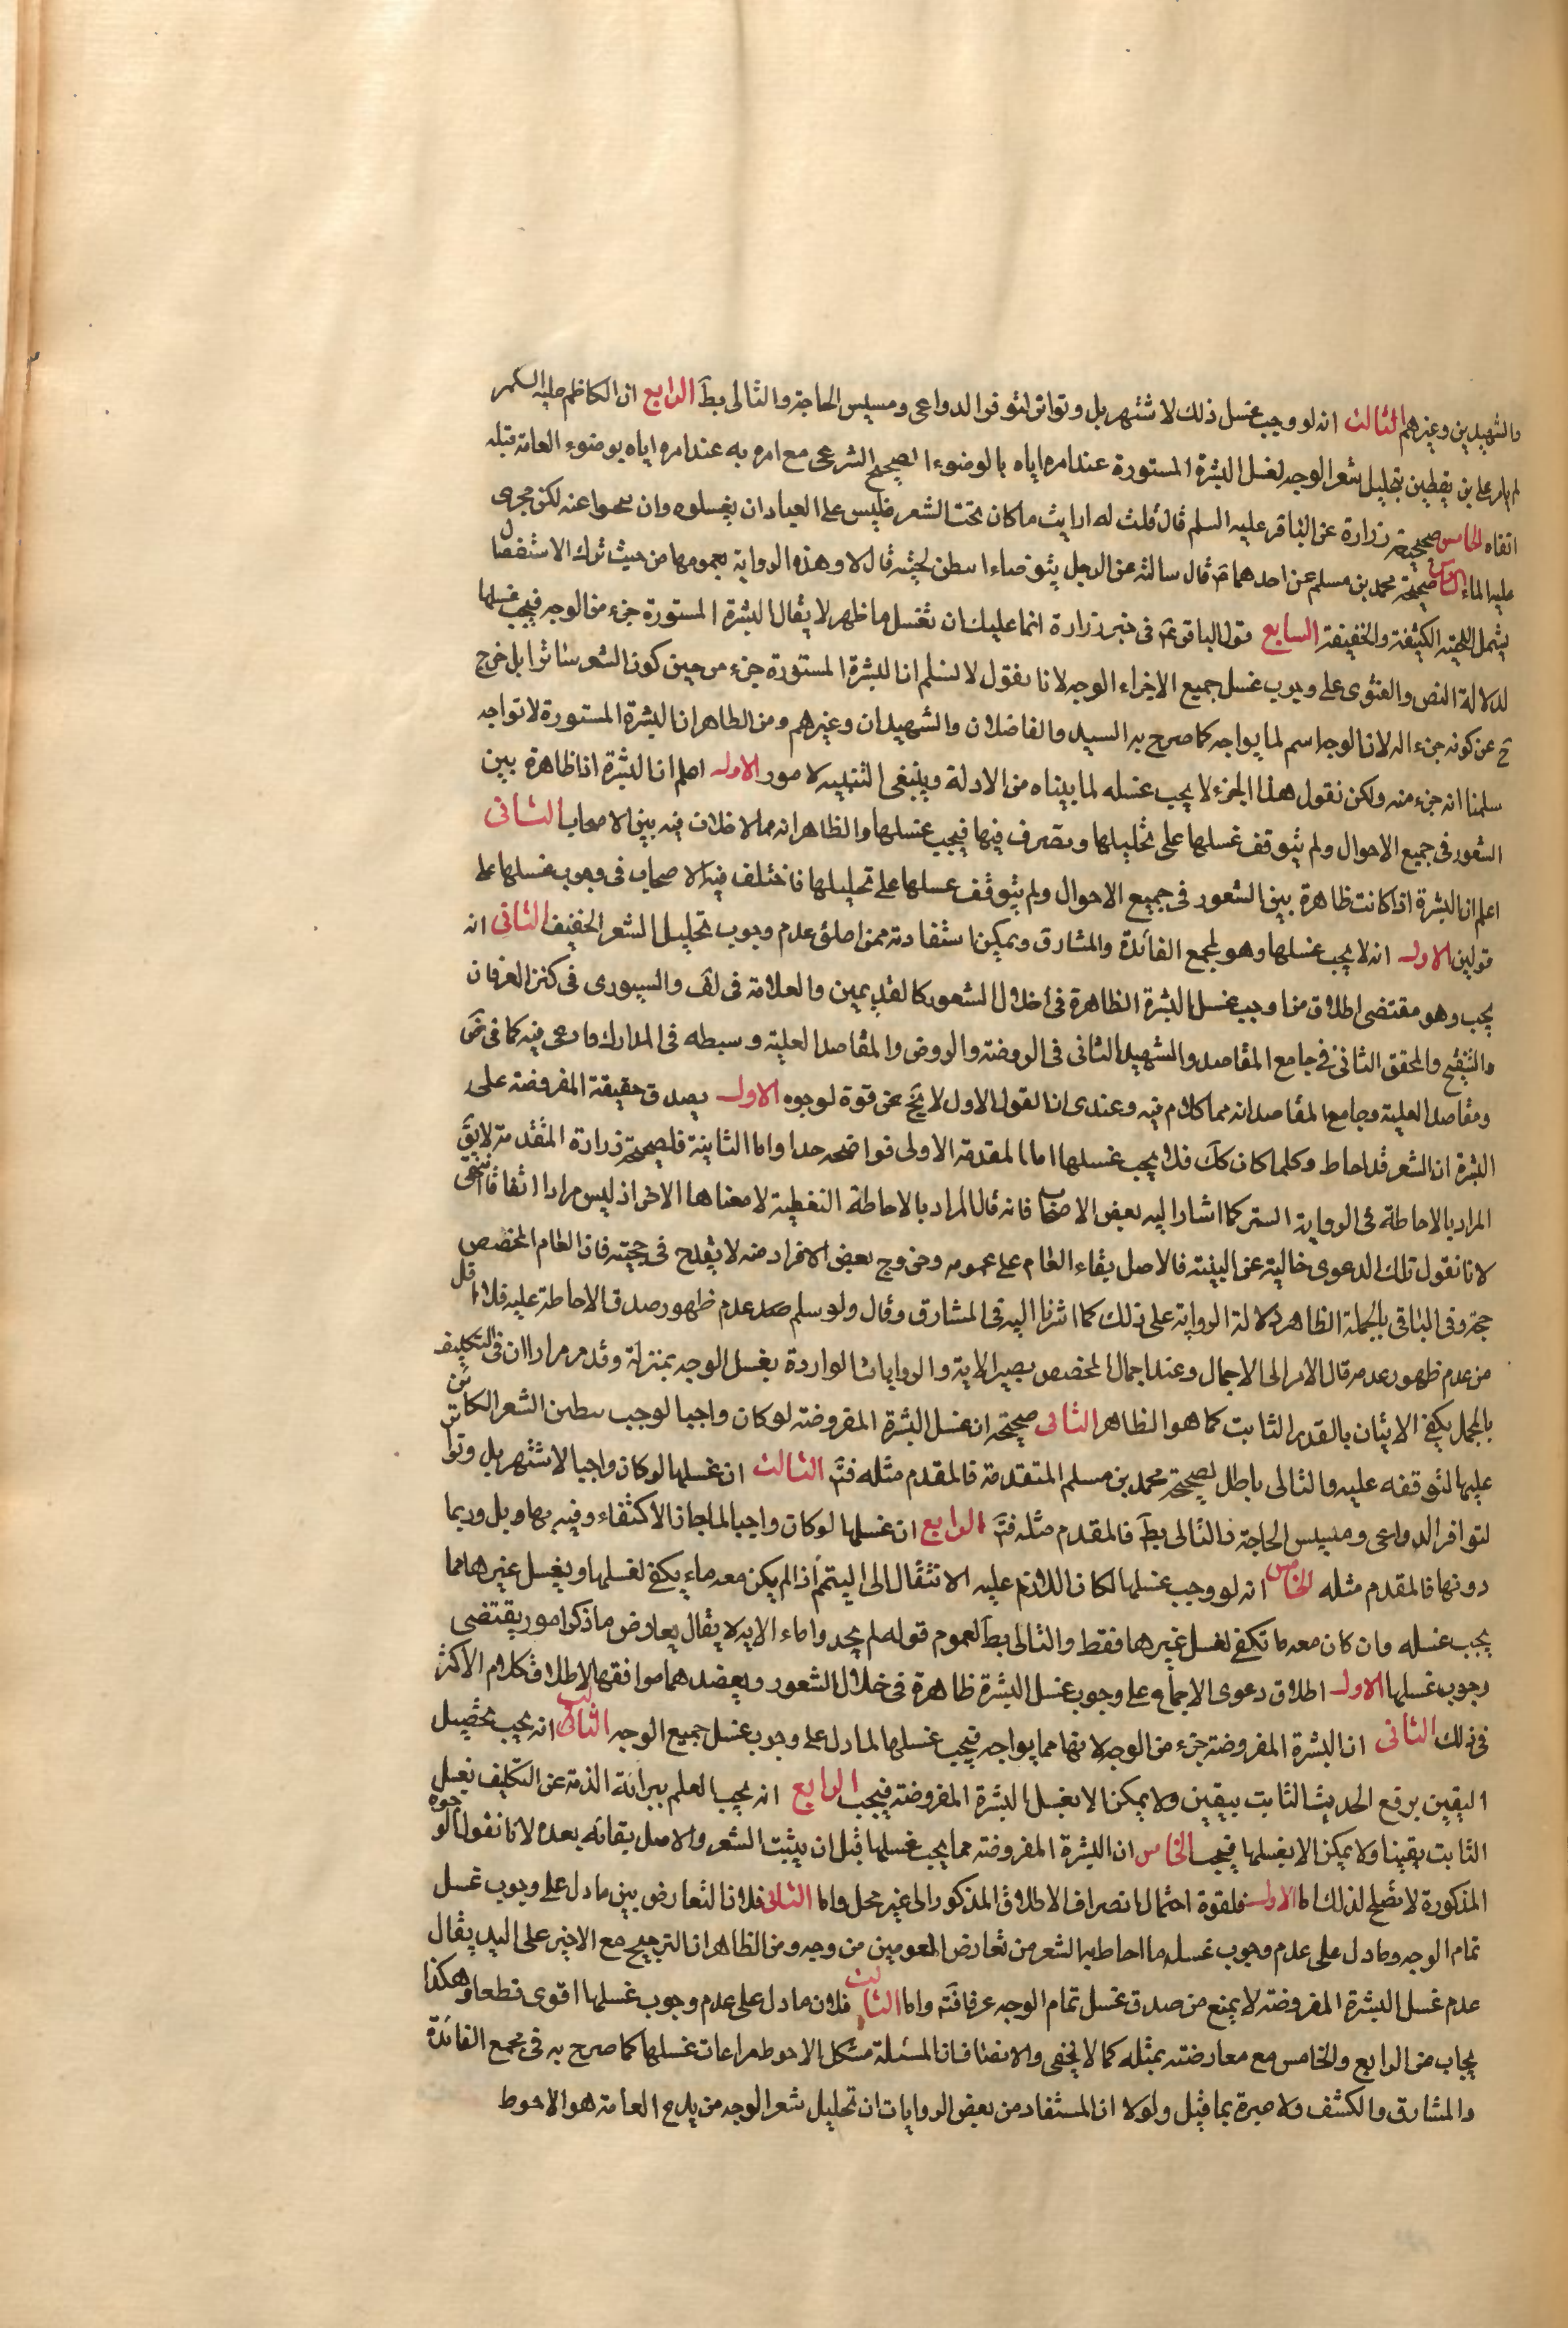 والشهيدين وغيرهم الثالث انه لو وجب غسل ذلك لاشتهر بل وتواتر لتوفر الدواعى ومسيس الحاجة والتالى بط الرابع ان الكاظم عليه السلم
لم يامر على بن يقطين بتخليل شعر الوجه لغسل البشرة المستورة عند امره اياه بالوضوء الصحيح الشرعى مع امره به عند امره اياه بوضوء العامة قبله
اتقاه الخامس صحيحة زرارة عن الباقر عليه السلم قال قلت له ارايت ما كان تحت الشعر فليس على العباد ان يغسلوه وان يبحثوا عنه لكن يجرى
عليه الماء السادس صحيحة محمد بن مسلم عن احدهما م قال سالته عن الرجل يتوضاء ايبطن لحيته قال لا وهذه الرواية بعمومها من حيث ترك الاستفصال
يشمل اللحية الكثيفة والخفيفة السابع قول الباقر م في خبر زرارة انما عليك ان تغسل ما ظهر لا يقال البشرة المستورة جزء من الوجه فيجب غسلها
لدلالة النص والفتوى على وجوب غسل جميع الاجزاء الوجه لانا نقول لا نسلم ان البشرة المستورة جزء من حين كون الشعر ساترا بل خرج
ح عن كونه جزء اله لان الوجه اسم لما يواجه كما صرح به السيد والفاضلان والشهيدان وغيرهم ومن الظاهر ان البشرة المستورة لا تواجه
سلمنا انه جزء منه ولكن نقول هذا الجزء لا يجب غسله لما بيناه من الادلة وينبغى التنبيه لامور الاول اعلم ان البشرة اذا ظاهرة بين
الشعور في جميع الاحوال ولم يتوقف غسلها على تخليلها وتصرف فيها فيجب غسلها والظاهر انه مما لا خلاف فيه بين الاصحاب الثانى
اعلم ان البشرة اذا كانت ظاهرة بين الشعور في جميع الاحوال ولم يتوقف غسلها على تخليلها فاختلف فيه الاصحاب في وجوب غسلها على
قولين الاول انه لا يجب غسلها وهو لمجمع الفائدة والمشارق ويمكن استفادته ممن اطلق عدم وجوب تخليل الشعر الخفيف الثانى انه
يجب وهو مقتضى اطلاق من اوجب غسل البشرة الظاهرة في خلال الشعور كالقديمين والعلامة في لف والسيورى في كنز العرفان
والتنقيح والمحقق الثانى في جامع المقاصد والشهيد الثانى في الروضة والروض والمقاصد العلية وسبطه في المدارك وادعى فيه كما في ض
ومقاصد العلية وجامع المقاصد انه مما كلام فيه وعندى ان القول الاول لا يخ عن قوة لوجوه الاول يصدق حقيقة المفروضة على
البشرة ان الشعر قد احاط وكلما كان كك فلا يجب غسلها اما المقدمة الاولى فواضحه جدا واما الثانية فلصحيحة زرارة المتقدمة لا يق
المراد بالاحاطة في الرواية الستر كما اشار اليه بعض الاصحاب فانه قال المراد بالاحاطة التغطية لا معناها الاخر اذ ليس مرادا اتفاقا انتهى
لانا نقول تلك الدعوى خالية عن البينة فالاصل بقاء العام على عمومه وخروج بعض الافراد منه لا يقدح في حجيته فان العام المخصص
حجة في الباقى بالجملة الظاهر دلالة الرواية على ذلك كما اشرنا اليه في المشارق وقال ولو سلم عدم ظهور صدق الاحاطة عليه فلا اقل
من عدم ظهور عدمه قال الامر الى الاجمال وعند اجمال المخصص يصير الاية والروايات الواردة بغسل الوجه بمنزلة وقد مر مرارا ان في التكليف
بالمجمل يكفى الاتيان بالقدر الثابت كما هو الظاهر الثانى صحيحة ان غسل البشرة المفروضة لو كان واجبا لوجب تبطين الشعر الكائن
عليها لتوقفه عليه والتالى باطل لصحيحة محمد بن مسلم المتقدمة فالمقدم مثله فتم الثالث ان غسلها لو كان واجبا لاشتهر بل وتواتر
لتوافر الدواعى ومسيس الحاجة والتالى بط فالمقدم مثله فتم الرابع ان غسلها لو كان واجبا لما جاز الاكتفاء وفيه بهاو بل وربما
دونها فالمقدم مثله الخامس انه لو وجب غسلها لكان اللازم عليه الانتقال الى التيمم اذا لم يكن معه ماء يكفى لغسلها ويغسل غيرها مما
يجب غسله وان كان معه ما تكفى لغسل غيرها فقط والتالى بط لعموم قوله لم يجدوا ماء الايه لا يقال يعارض ما ذكر امور يقتضى
وجوب غسلها الاول اطلاق دعوى الاجماع على وجوب غسل البشرة ظاهرة في خلال الشعور ويعضدهما موافقها لاطلاق كلام الاكثر
في ذلك الثانى ان البشرة المفروضة جزء من الوجه لانها مما يواجه فيجب غسلها لما دل على وجوب غسل جميع الوجه الثالث انه يجب تحصيل
اليقين برفع الحديث الثابت بيقين ولا يمكن الا بغسل البشرة المفروضة فيجب الرابع انه يجب العلم ببرائة الذمة عن التكليف بغسل
الثابت يقينا ولا يمكن الا بغسلها فيجب الخامس ان البشرة المفروضة مما يجب غسلها قبل ان ينبت الشعر والاصل بقائه بعده لانا نقول الوجوه
المذكورة لا تصلح لذلك اما الاول فلقوة احتمال انصراف الاطلاق المذكور الى غير محل واما الثانى فلان التعارض بين ما دل على وجوب غسل
تمام الوجه وما دل على عدم وجوب غسل ما احاط به الشعر من تعارض العمومين من وجه ومن الظاهر ان الترجيح مع الاخير على اليد يقال
عدم غسل البشرة المفروضة لا يمنع من صدق غسل تمام الوجه عرفا فتم واما الثالث فلان ما دل على عدم وجوب غسلها اقوى قطعا وهكذا
يجاب من الرابع والخامس مع معارضته بمثله كما لا يخفى والانصاف ان المسئلة مشكل الاحوط مراعات غسلها كما صرح به في مجمع الفائدة
والمشارق والكشف ولا عبرة بما قيل ولولا ان المستفاد من بعض الروايات ان تخليل شعر الوجه من بدع العامة هو الاحوط